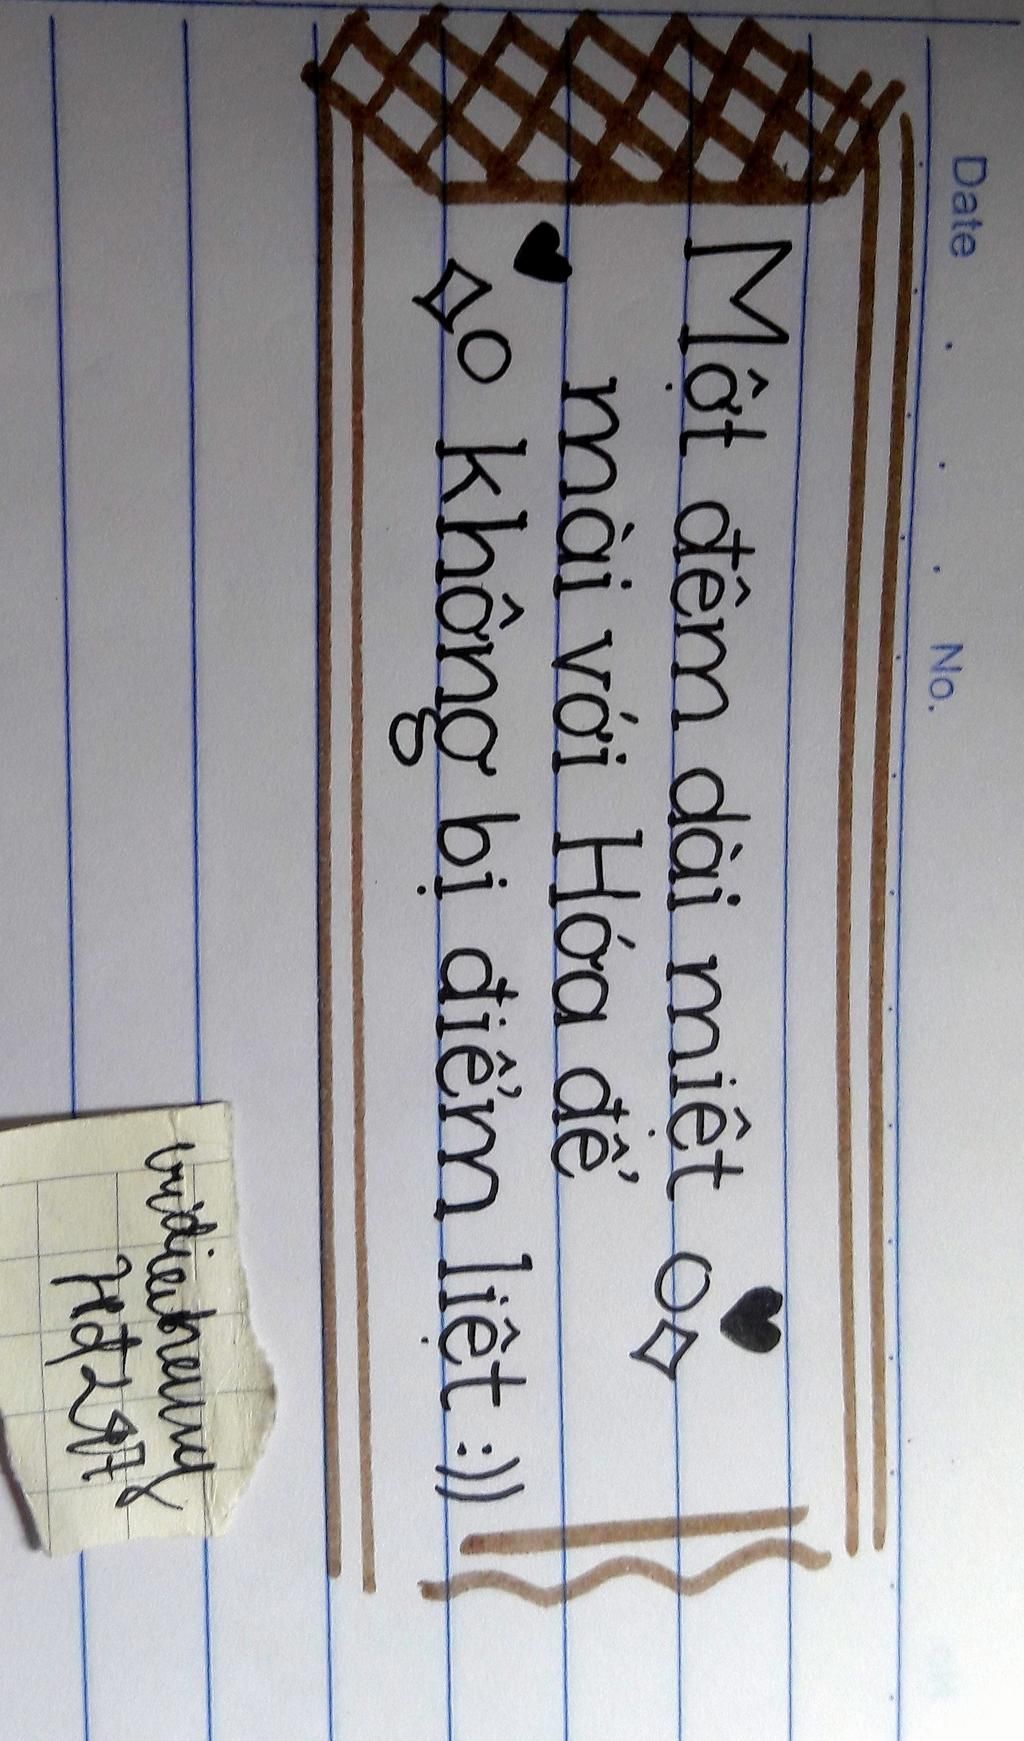 Date . . . No.
Một đêm dài miệt
mài với Hóa để
không bị điểm liệt :))